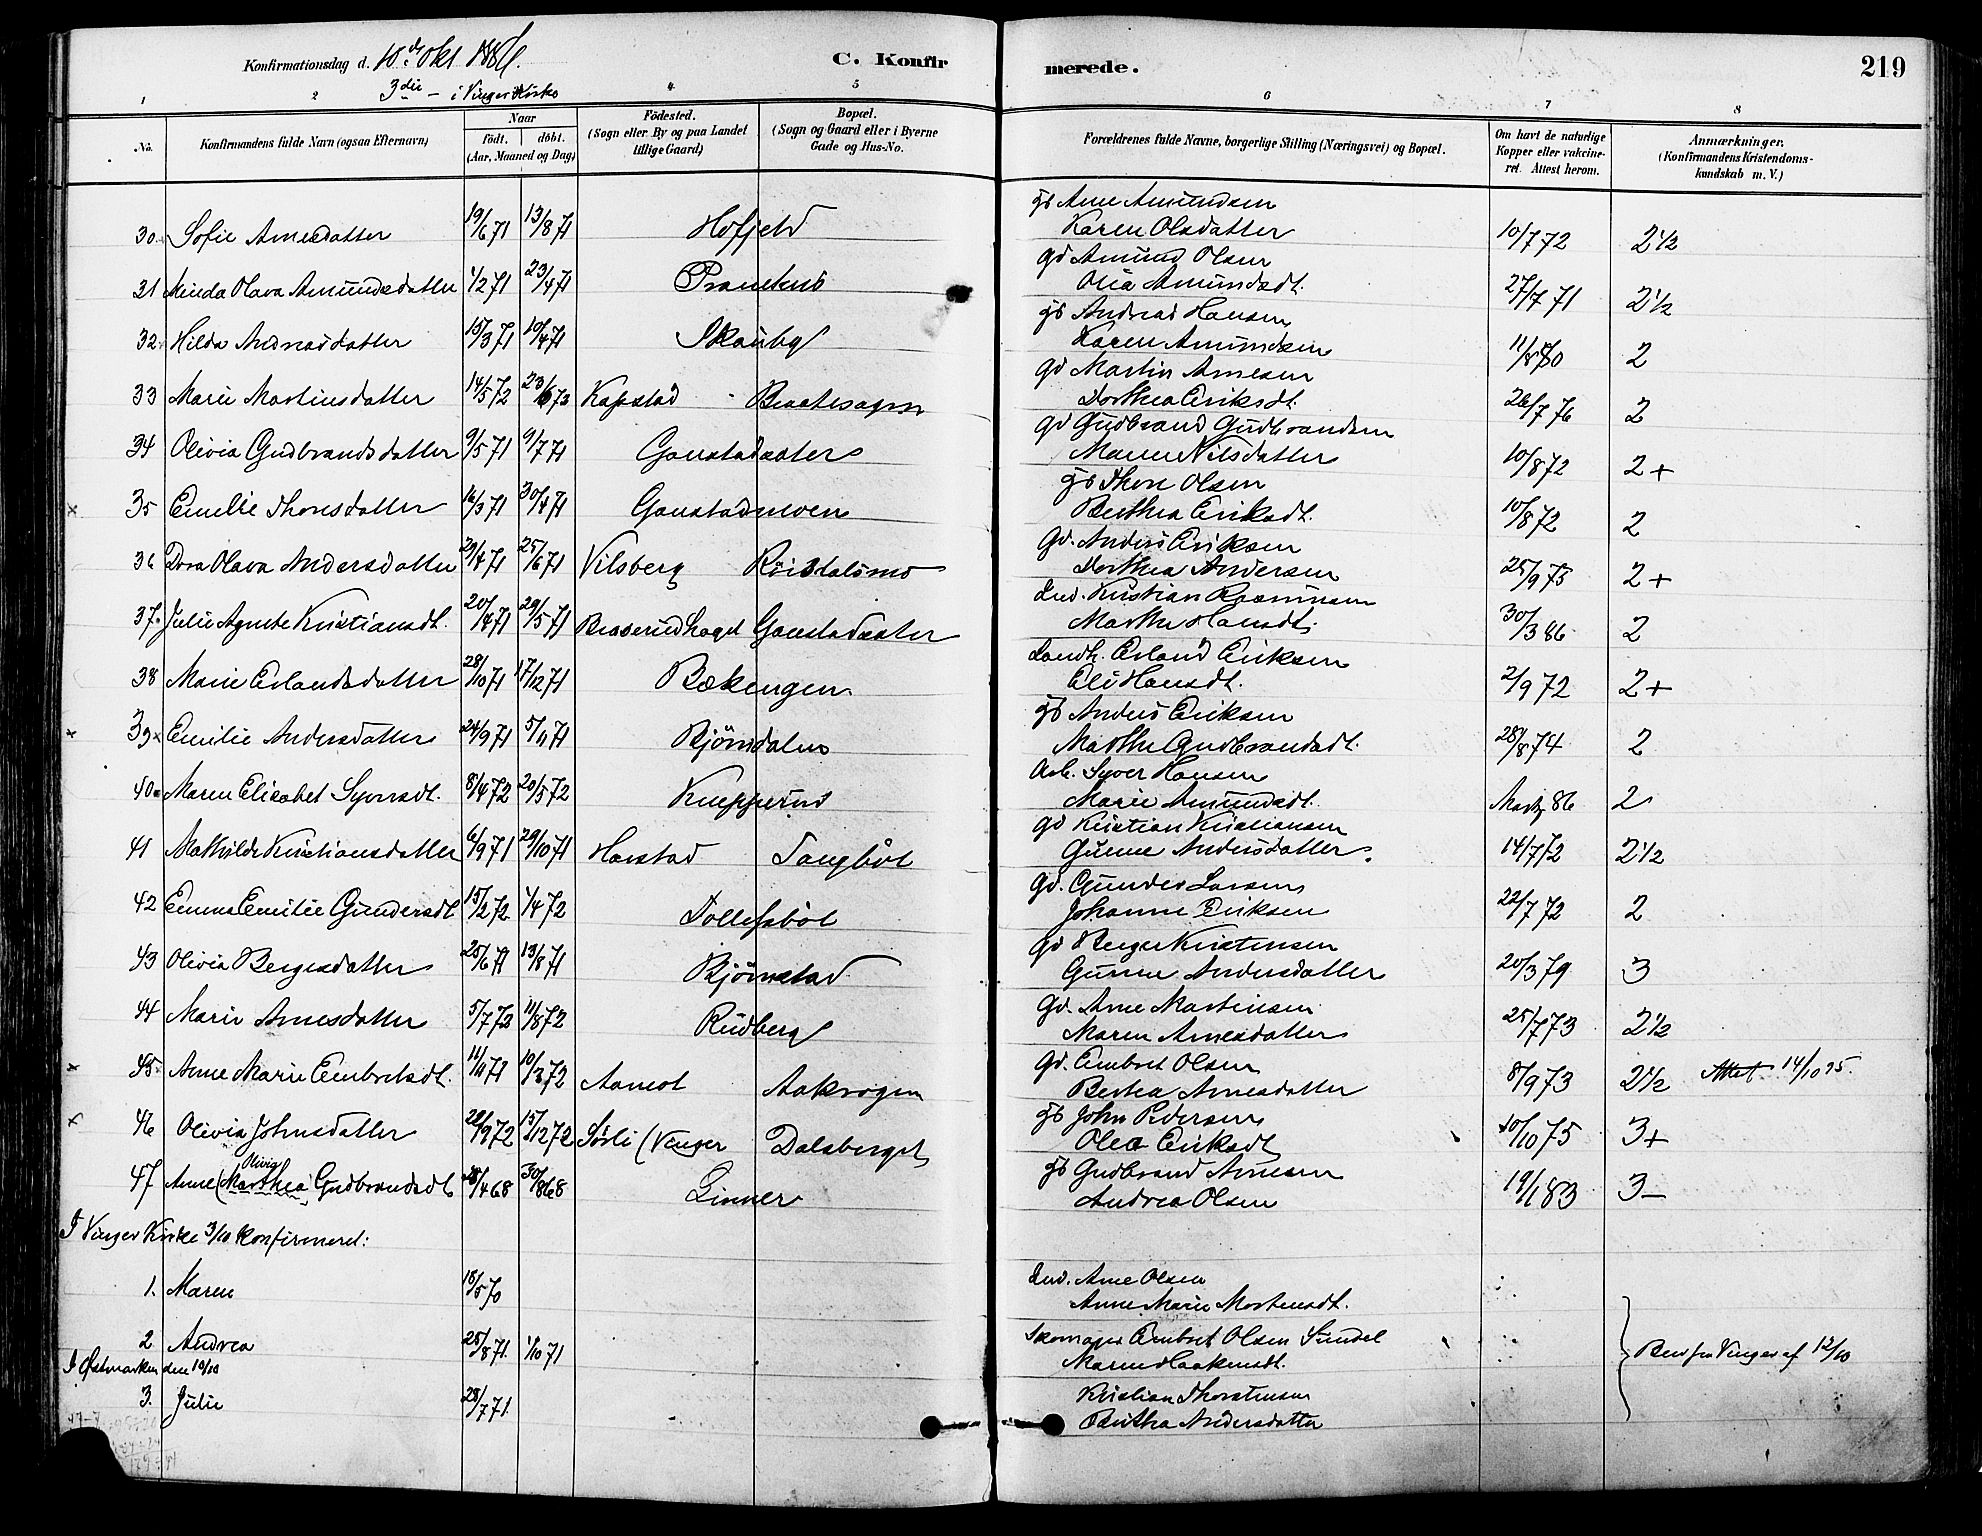 Konfirmationsdag d. 10de Okt 1886.
3die – i Vinger Kirke
C. Konfirmerede.
219
1 2 4 5 6 7 8
No.
Konfirmandens fulde Navn (ogsaa Efternavn)
Naar
født. døbt.
(Aar, Maaned og Dag)
Födested.
(Sogn eller By og paa Landet tillige Gaard)
Bopæl.
(Sogn og Gaard eller i Byerne Gade og Hus-No.
Forældrenes fulde Navne, borgerlige Stilling (Næringsvei) og Bopæl.
Om havt de naturlige Kopper eller vakcineret. Attest herom.
Anmærkninger.
(Konfirmandens Kristendomskundskab m. V.)
30. Sofie Arnesdatter 19/6 71 13/8 71 Hofjeld gb Arne Amundsen
Karen Olsdatter 10/7 72 2 1/2
31 Minda Olava Amundsdatter 1/2 71 23/4 71 gd Amund Olsen
Olia Amundsdt. 27/7 71 2 1/2
32. Hilda Andreasdatter 15/3 71 10/4 71 Skauby gb Andreas Hansen
Karen Amundsen 2
33 Marie Martinsdatter 14/5 72 Kapstad - gd Martin Arnesen
Dorthea Eriksdt. 26/7 76 2
34 Olivia Gudbrandsdatter 9/5 71 9/7 71 Gaustadsæter gd Gudbrand Gudbrandsen
Maren Nilsdatter 10/8 72 2+
x 35 Emelie Thoresdatter 16/3 71 30/4 71 Gaustadmoen gb Thore Olsen
Berthea Eriksdt. 10/8 72 2
36 Dora Olava Andersdatter 29/4 71 25/6 71 Vilsberg Röisdalsmo Gd. Anders Eriksen
Dorthea Andersen 25/9 75 2+
37. Julie Agnete Kristiansdt. 20/4 71 29/5 71 Braserudhaget Gaustadsæter Ind. Kristian Rasmussen
Marthe Hansdt. 30/3 86 2
38 Marie Erlandsdatter 28/10 71 17/12 71 Bækengen Landh. Erland Eriksen
Eli Hansdt. 2/9 72 2+
x 39 Emilie Andersdatter 24/9 71 5/11 71 Björnsdalen gb Anders Eriksen
Marthe Gudbrandsdt. 28/8 74 2
40 Maren Elisabet Syversdt. 8/4 72 20/5 72 Knapperud Arb. Syver Hansen
Marie Amundsdt. Marts 86 2
41 Mathilde Kristiansdatter 6/9 71 29/10 71 Harstad Tangböl gd Kristian Kristiansen
Gunne Andersdatter. 14/7 72 2 1/2
42 Emma Emilie Gundersdt 15/2 72 1/4 72 Tollefsböl Gd. Gunder Larsen
Johanne Eriksen 22/7 72 2
43 Olivia Bergersdatter 25/6 71 13/8 71 Björnstad gd Berger Kristensen
Gunne Andersdatter 20/3 79 3
44 Marie Arnesdatter 5/7 72 11/8 72 Rudberg Gd. Arne Martinsen
Maren Arnesdatter 25/7 73 2 1/2
x 45 Anne Marie Embretsdt. 11/11 71 10/3 72 Aamot Aakrogen Gd. Embret Olsen
Bertea Arnesdatter 8/9 73 2 1/2 Attest 14/10 95.
x 46 Olivia Johnsdatter 22/9 72 15/12 72 Sörli (Vinger Dalsberget gb John Pedersen
Olea Eriksdt 10/10 75 3+
47 Anne (Marthea) Olivia Gudbrandsdt 28/4 68 30/8 68 Linner gb Gudbrand Arnesen
Andrea Olsen 19/1 83 3–
I Vinger Kirke 3/10 konfirmeret:
1. Maren 18/5 70 Ind. Arne Olsen
Anne Marie Mortensdt.
2 Andrea 25/8 71. 1/10 71 Skomager Embret Olsen Sundet
Maren Haakensdt. Bev. fra Vinger af 12/10
I Østmarken den 10/10
3. Julie 28/7 71. Kristian Thorstensen
Berthea Andersdatter